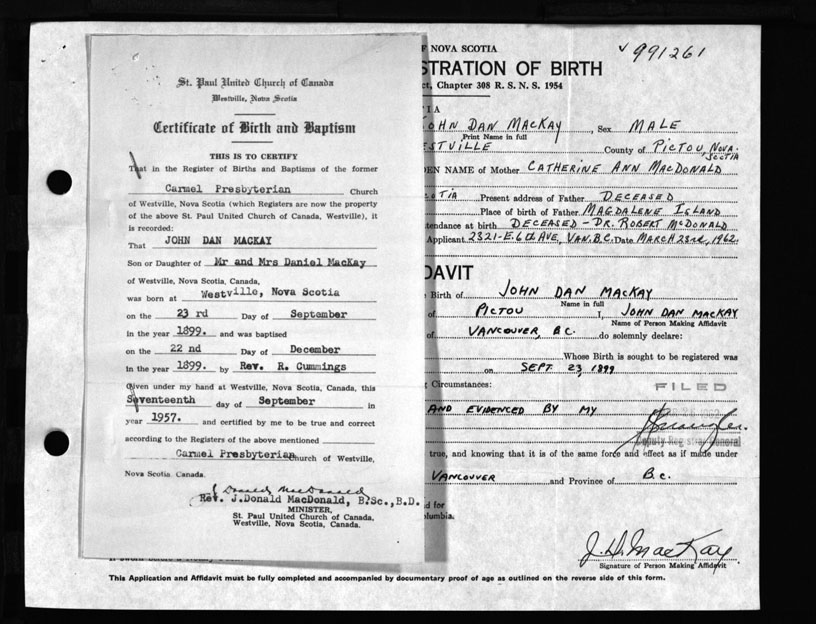 St. Paul United Church of Canada
Westville, Nova Scotia
Certificate of Birth and Baptism
THIS IS TO CERTIFY
That in the Register of Births and Baptisms of the former
Carmel Presbyterian Church
of Westville, Nova Scotia (which Registers are now the property
of the above St. Paul United Church of Canada, Westville), it
is recorded:
That JOHN DAN MACKAY
Son or Daughter of Mr and Mrs Daniel MacKay
of Westville, Nova Scotia, Canada,
was born at Westville, Nova Scotia
on the 23 rd Day of September
in the year 1899. and was baptised
on the 22 nd Day of December
in the year 1899. by Rev. R. Cummings
Given under my hand at Westville, Nova Scotia, Canada, this
Seventeenth day of September in
year 1957. and certified by me to be true and correct
according to the Registers of the above mentioned
Carmel Presbyterian Church of Westville,
Nova Scotia Canada.
J. Donald MacDonald
Rev. J.Donald MacDonald, B.Sc., B.D.
MINISTER,
St. Paul United Church of Canada,
Westville, Nova Scotia, Canada.
F NOVA SCOTIA
991261
STRATION OF BIRTH
ct, Chapter 308 R. S. N. S. 1954
TIA
JOHN DAN MACKAY, Sex MALE
Print Name in full
ESTVILLE County of PICTOU, NOVA SCOTIA
DEN NAME of Mother CATHERINE ANN MACDONALD
COTIA Present address of Father DECEASED
Place of birth of Father MAGDALENE ISLAND
tendance at birth DECEASED - DR. ROBERT MCDONALD
Applicant 2321-E. 6th AVE, VAN. B.C. Date MARCH 23rd, 1962.
DAVIT
Birth of JOHN DAN MACKAY
Name in full
of PICTOU I, JOHN DAN MACKAY
Name of Person Making Affidavit
of VANCOUVER, B.C. do solemnly declare:
Whose Birth is sought to be registered was
on SEPT. 23, 1899
t Circumstances:
FILED
AND EVIDENCED BY MY
Deputy Registrar General
true, and knowing that it is of the same force and effect as if made under
VANCOUVER and Province of B.C.
d for
olumbia.
J. D. MacKay
Signature of Person Making Affidavit
This Application and Affidavit must be fully completed and accompanied by documentary proof of age as outlined on the reverse side of this form.